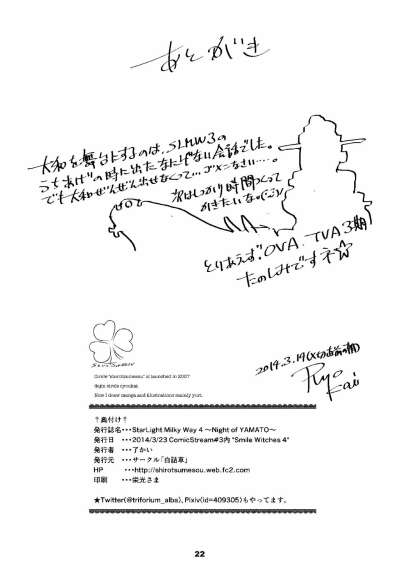 あとがき
大和を舞台にするのは、SLMW3の
うちあげの時に出たなにげない会話でした。
でも大和ぜんぜん出せなくって…ゴメンなさい…。
次はしっかり時間つくって
かきたいな。
とりあえず、OVA、TVA3期
たのしみですネ☆
2014.3.19
Ryo Kai
Circle "shirotsumesou" is launched in 2007
Now I draw manga and illustrations mainly yuri.
↑奥付け↑
発行誌名・・・StarLight Milky Way 4 ～Night of YAMATO～
発行日　・・・2014/3/23 ComicStream#3内 "Smile Witches 4"
発行者　・・・了かい
発行元　・・・サークル「白詰草」
HP　　・・・http://shirotsumesou.web.fc2.com
印刷　　・・・栄光さま
★Twitter(@triforium_alba)、Pixiv(id=409305)もやってます。
22